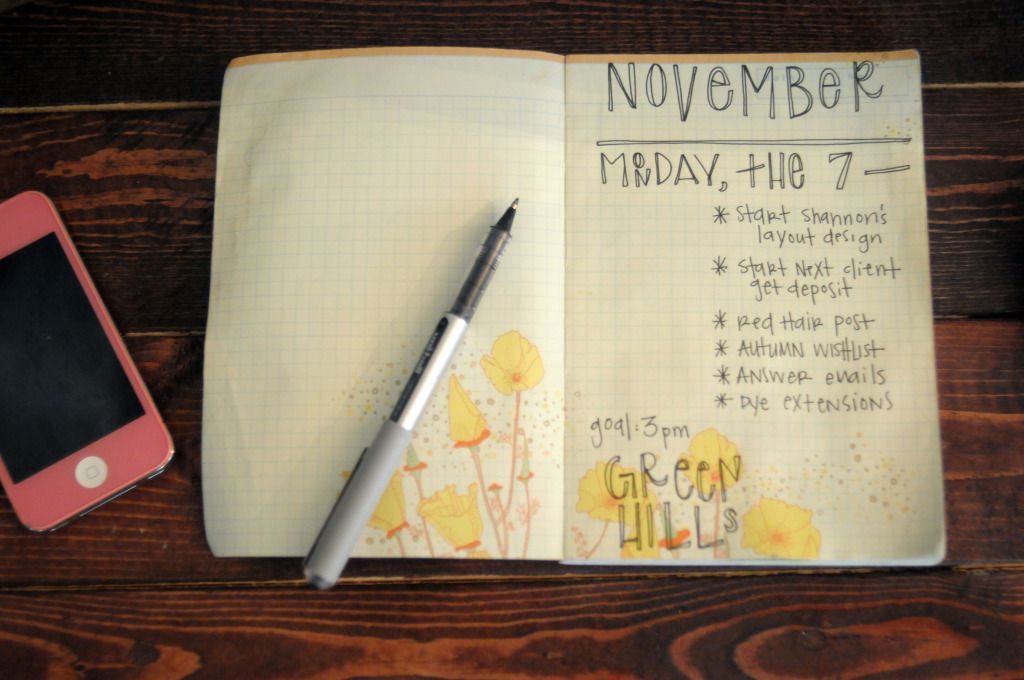 NOVEMBER
MONDAY, tHE 7 —
* Start Shannon's
layout design
* Start Next client
get deposit
* Red Hair post
* AUTUMN WISHLIST
* ANSWER emails
* Dye extensions
goal: 3pm
GREEN
HILLs